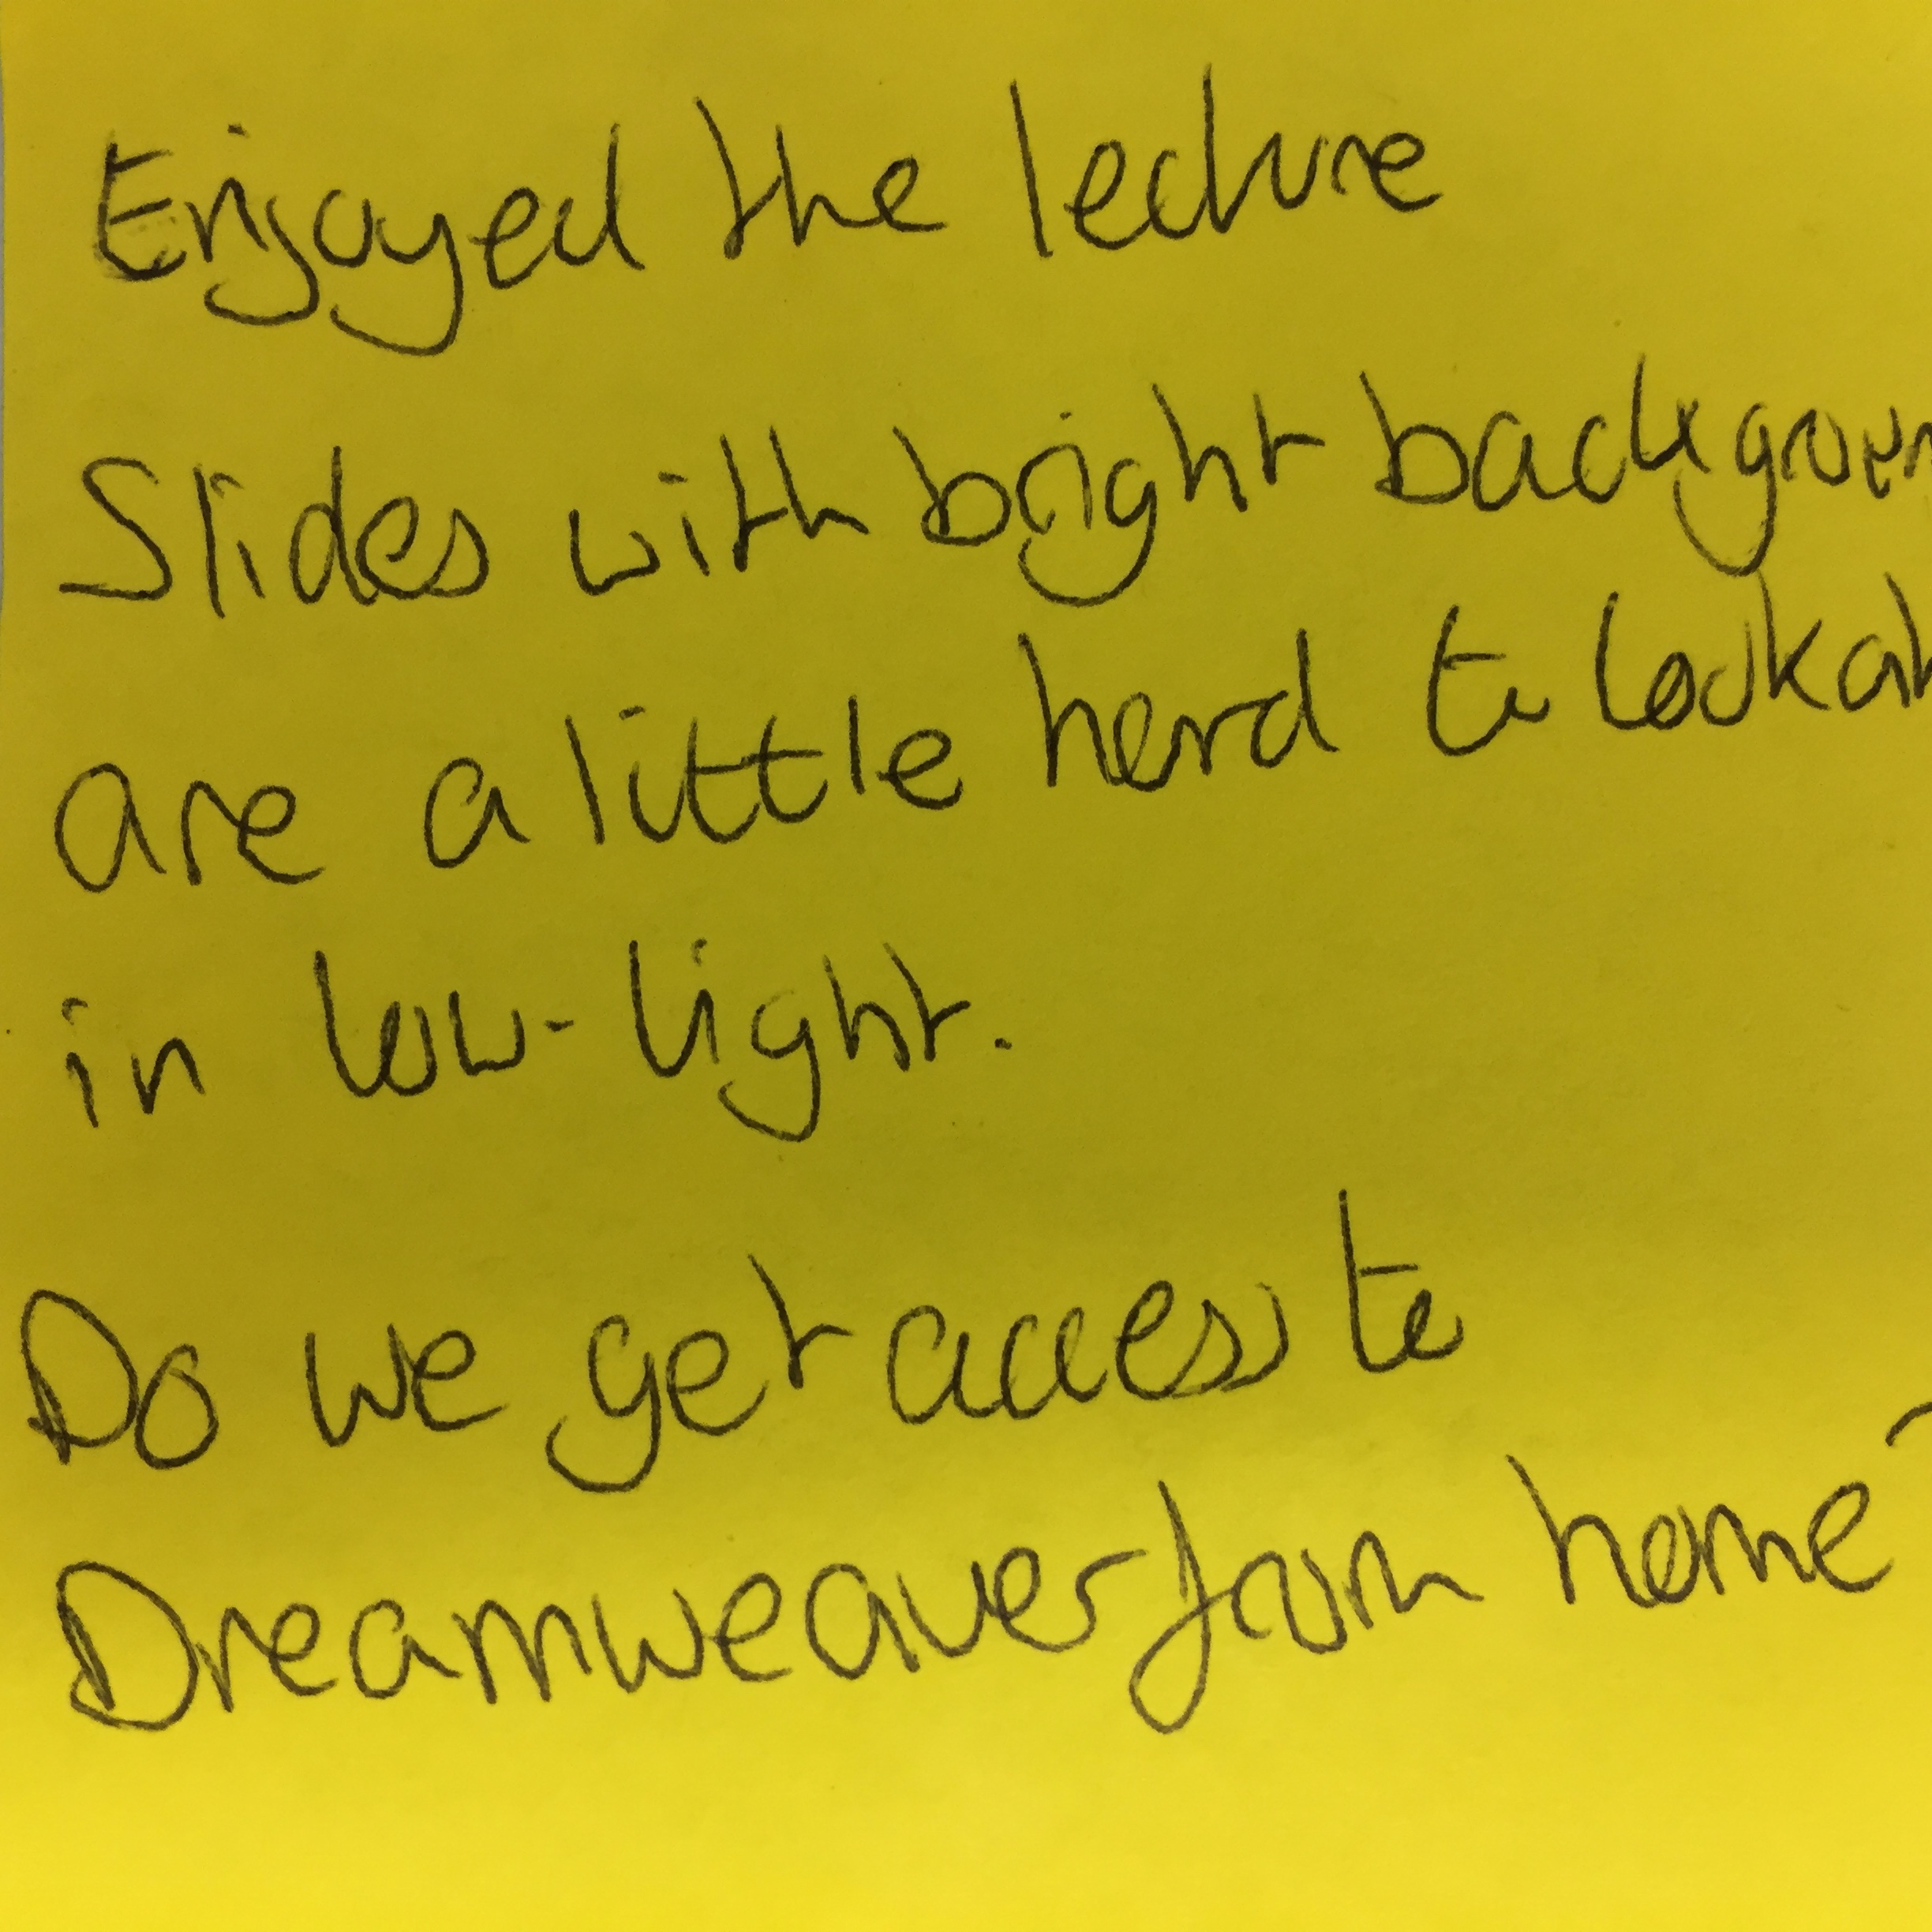 Enjoyed the lecture
Slides with bright backgroun
are a little hard to look at
in low-light.
Do we get access to
Dreamweaver from home